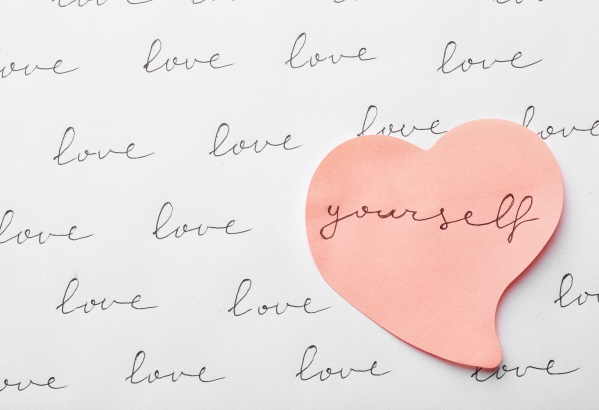 love love
love love love love
love love love love
love love yourself
love love lo
love love love love